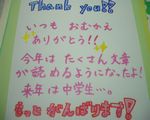 Thank you!?
いつも おむかえ
ありがとう!!
今年は たくさん 文章
が読めるようになったよ!
来年は中学生…。
もっと がんばります!